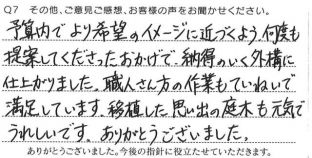 Q7 その他、ご意見ご感想、お客様の声をお聞かせください。
予算内でより希望のイメージに近づくよう、何度も
提案してくださったおかげで、納得のいく外構に
仕上がりました。職人さん方の作業もていねいで
満足しています。移植した思い出の庭木も元気で
うれしいです。ありがとうございました。
ありがとうございました。今後の指針に役立たせていただきます。